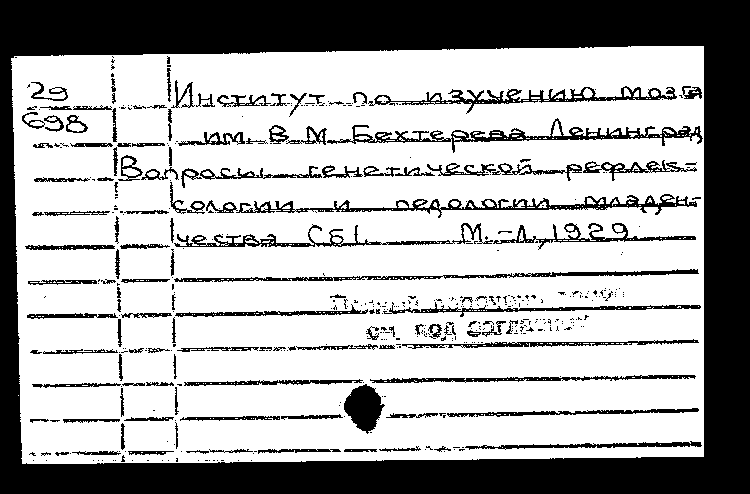 29
698
Институт по изучению мозга
им. В. М. Бехтерева Ленинград
Вопросы генетической рефлек-
сологии и педологии младен-
чества Сб 1. М.-Л., 1929.
Полный
см. под заглавием